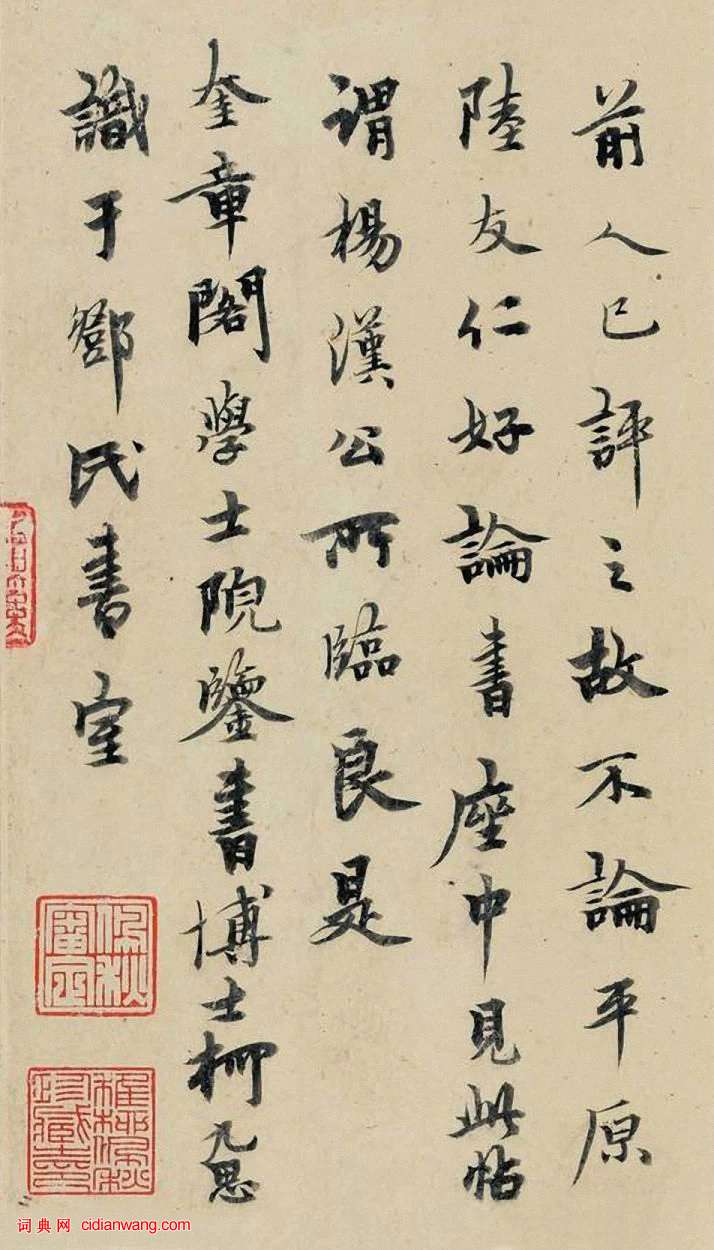 前人已評之故不論平原
陸友仁好論書座中見此帖
謂楊漢公所臨良是
奎章閣學士院鑒書博士柯九思
識于鄧氏書室
词典网 cidianwang.com